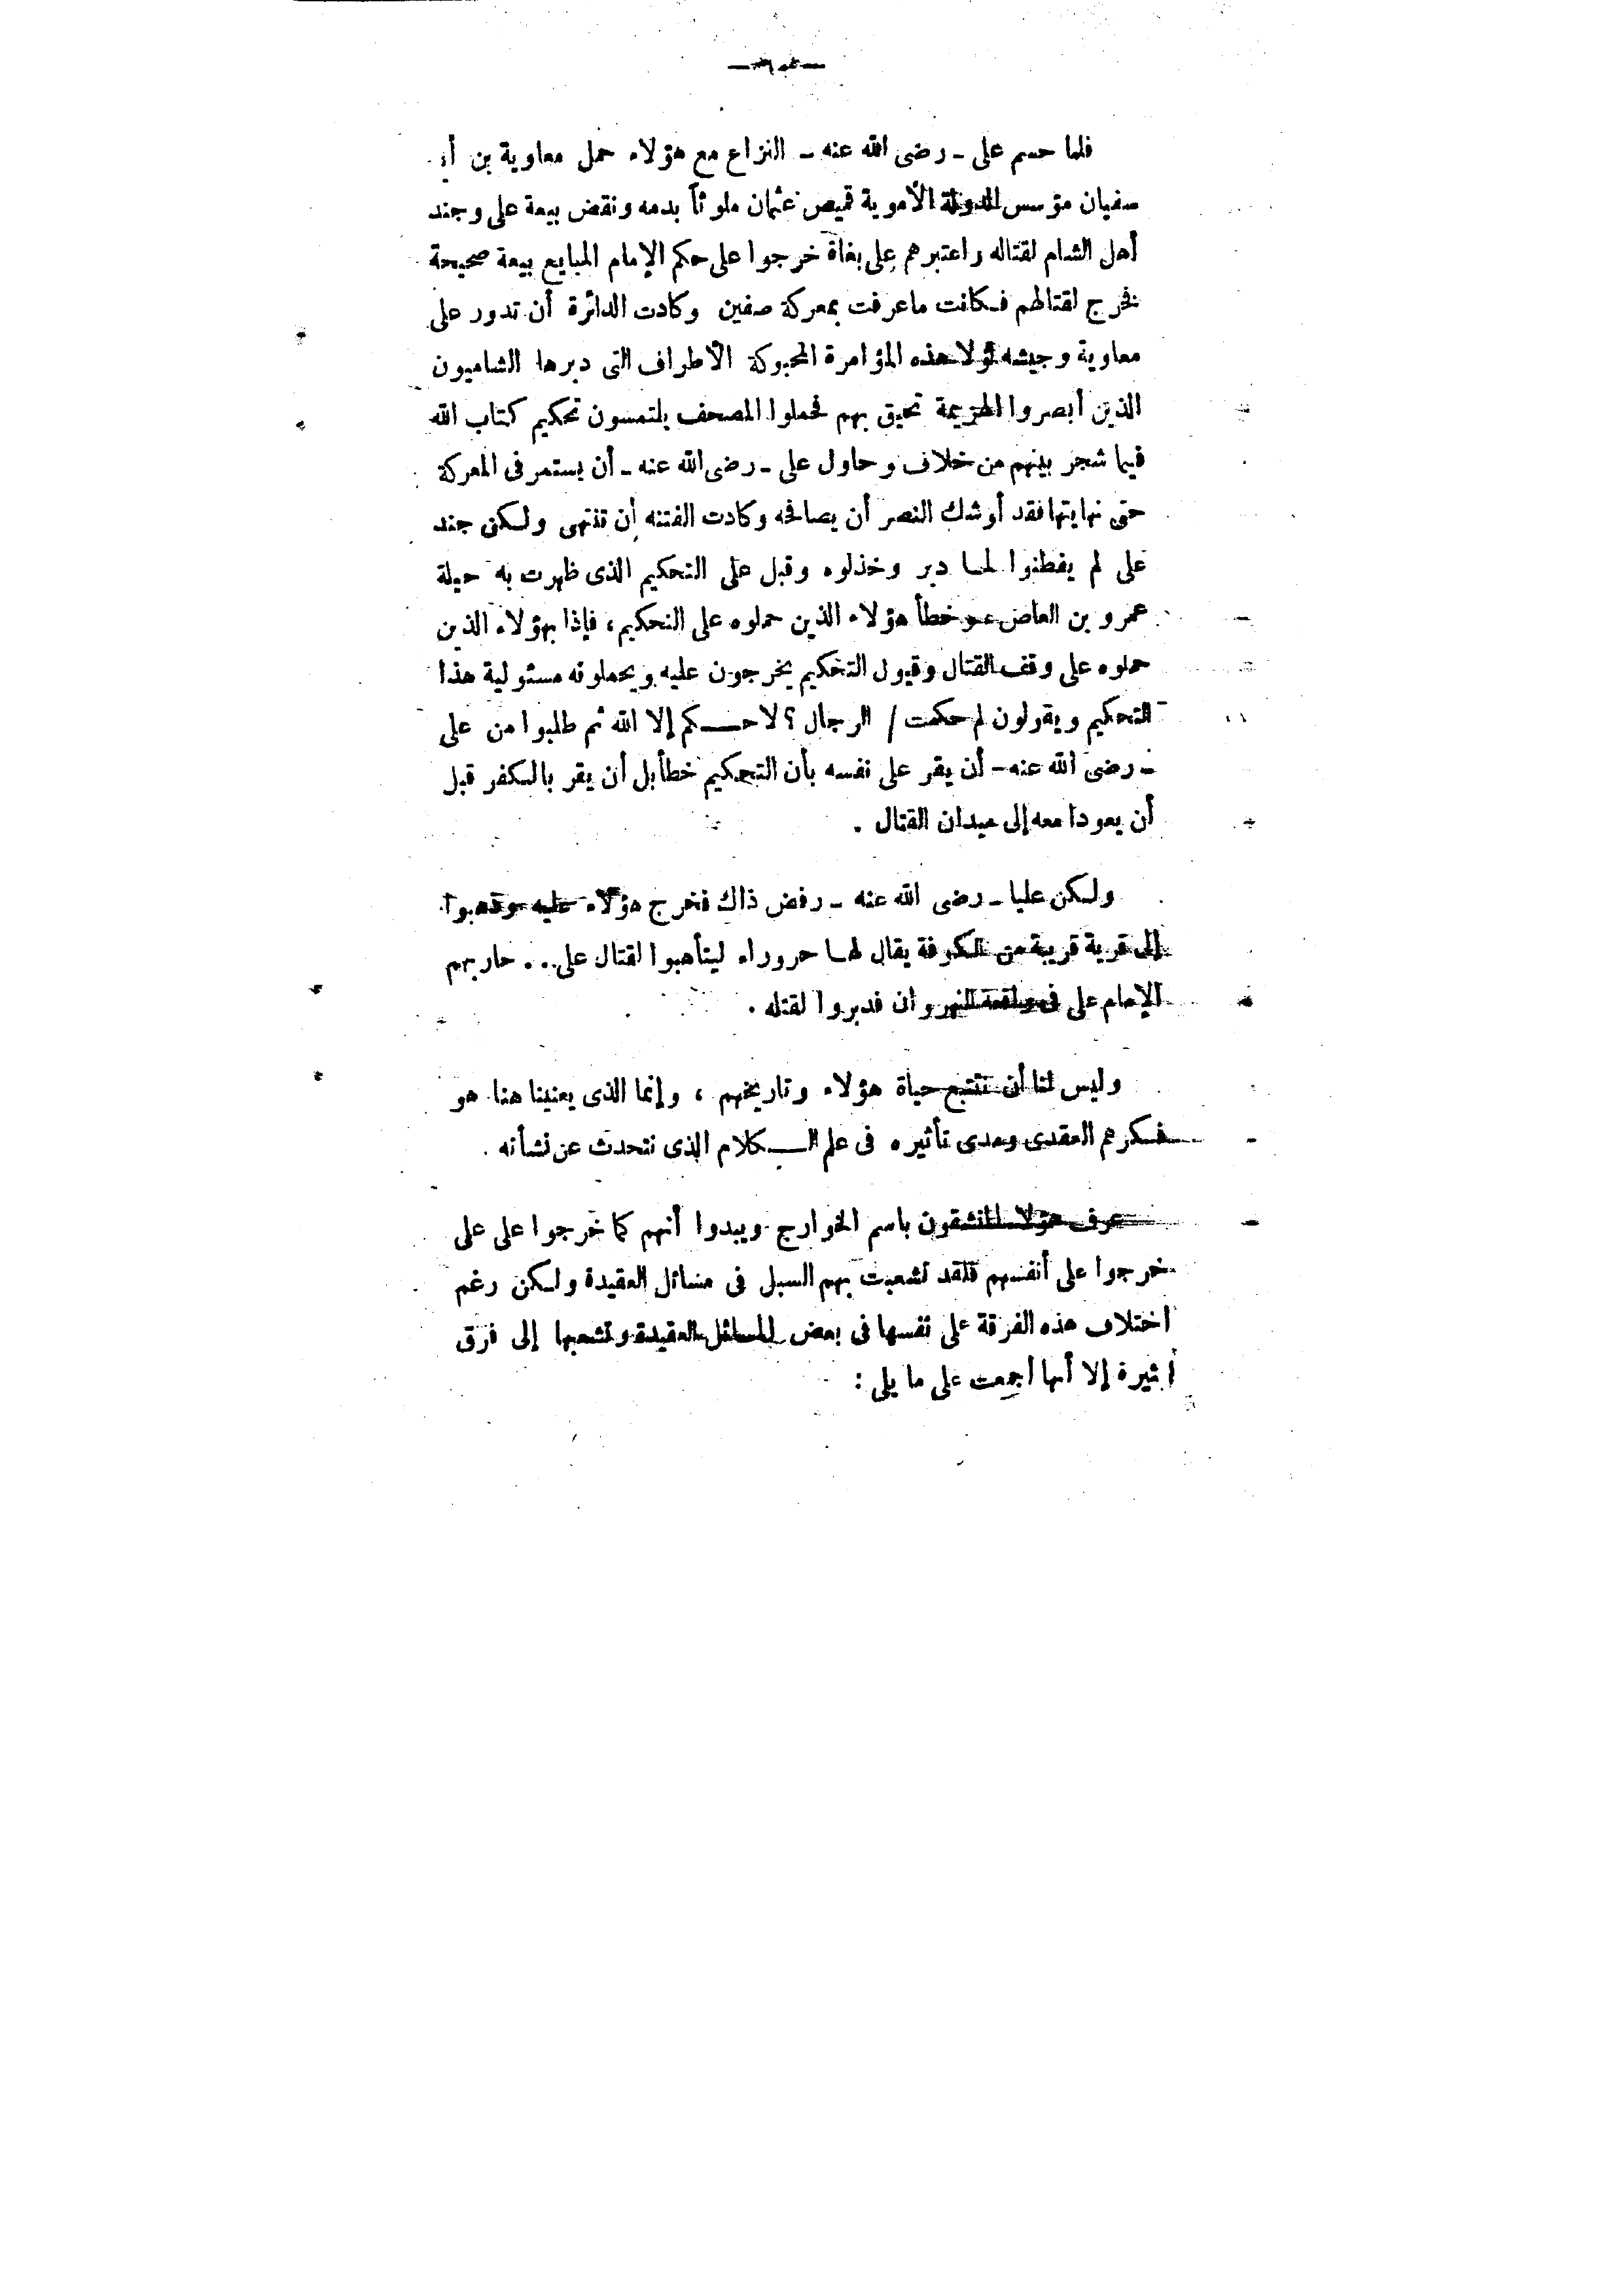 فلما حسم على - رضى الله عنه - النزاع مع هؤلاء حمل معاوية بن
سفيان مؤسس الدولة الأموية قميص عثمان ملوثاً بدمه ونقض بيعة على وجند
أهل الشام لقتاله واعتبرهم على بغاة خرجوا على حكم الإمام المبايع بيعة صحيحة
فخرج لقتالهم فكانت ما عرفت بمعركة صفين وكادت الدائرة أن تدور على
معاوية وجيشه لولا هذه المؤامرة المحبوكة الأطراف التى دبرها الشاميون
الذين أبصروا الهزيمة تحيق بهم فحملوا المصحف يلتمسون تحكيم كتاب الله
فيما شجر بينهم من خلاف وحاول على - رضى الله عنه - أن يستمر فى المعركة
حتى نهايتها فقد أوشك النصر أن يصافحه وكادت الفتنه أن تنتهى ولكن جند
على لم يفطنوا لما دبر وخذلوه وقبل على التحكيم الذى ظهرت به حيلة
عمرو بن العاص وخطأ هؤلاء الذين حملوه على التحكيم، فإذا بهؤلاء الذين
حملوه على وقف القتال وقبول التحكيم يخرجون عليه ويحملونه مسئولية هذا
التحكيم ويقولون لم حكمت / الرجال ؟ لا حكم إلا الله ثم طلبوا من على
- رضى الله عنه - أن يقر على نفسه بأن التحكيم خطأ بل أن يقر بالكفر قبل
أن يعودا معه إلى ميدان القتال .
ولكن عليا - رضى الله عنه - رفض ذاك فخرج هؤلاء عليه وذهبوا
إلى قرية قريبة من الكوفة يقال لها حروراء ليتأهبوا لقتال على . . . حاربهم
الإمام على فى واقعة النهروان فدبروا لقتله .
وليس لنا أن نتتبع حياة هؤلاء وتاريخهم ، وإنما الذى يعنينا هنا هو
فكرهم العقدى ومدى تأثيره فى علم الكلام الذى نتحدث عن نشأته .
عرف هؤلاء المنشقون باسم الخوارج ويبدوا أنهم كما خرجوا على على
خرجوا على أنفسهم فلقد تشعبت بهم السبل فى مسائل العقيدة ولكن رغم
اختلاف هذه الفرقة على نفسها فى بعض المسائل العقيدة وتشعبها إلى فرق
إلا أنها أجمعت على ما يلى :